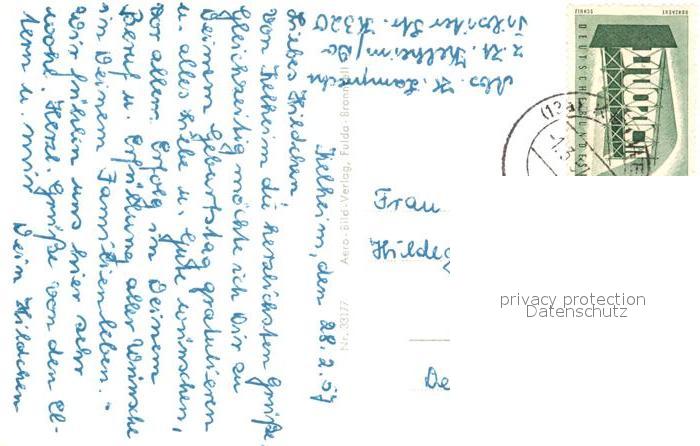 Kelheim, den 28.2.57
Liebes Hildchen
von Kelheim die herzlichsten Grüße.
Gleichzeitig möchte ich Dir zu
Deinem Geburtstag gratulieren
u. alles Liebe u. Gute wünschen,
vor allem Erfolg in Deinem
Beruf u. Erfüllung aller Wünsche
in Deinem Familienleben. -
Wir fühlen uns hier sehr
wohl. Herzl. Grüße von den El-
tern u. mir
Dein Hildchen
Abs. K. Lamprecht
z. Zt. Kelheim/Do
Str. K320
Nr. 33177 Aero-Bild-Verlag, Fulda-Bronnzell
Frau
Hildeg
De
DEUTSCHE BUNDESPOST
(13a) KE
-1.3.57
privacy protection
Datenschutz